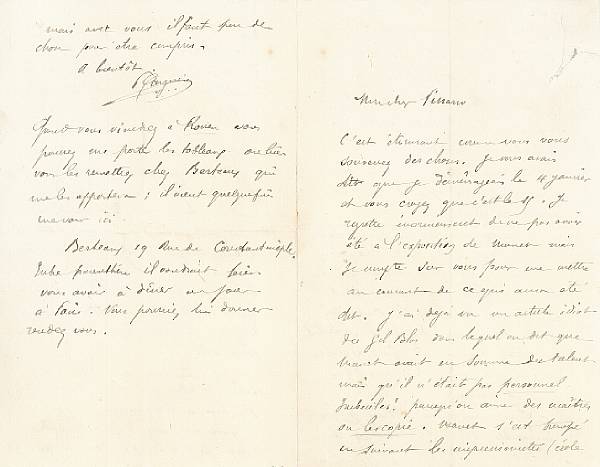 mais avec vous il faut peu de
chose pour être compris.
A bientôt
P Gauguin
Quand vous viendrez à Rouen vous
pouvez me porter les tableaux ou bien
vous les remettrez chez Bertaux qui
me les apportera ; il vient quelquefois
me voir ici.
Bertaux 19 Rue de Constantinople.
Entre parenthèse il voudrait bien
vous avoir à dîner un jour
à Paris. Vous pourriez lui donner
rendez vous.
Mon cher Pissarro
C'est étonnant comme vous vous
souvenez des choses. Je vous avais
dit que je déménageais le 4 janvier
et vous croyez que c'est le 15. Je
regrette énormément de ne pas avoir
été à l'exposition de Manet mais
je compte sur vous pour me mettre
au courant de ce qui aura été
dit. J'ai déjà vu un article idiot
du Gil Blas dans lequel on dit que
Manet avait en somme du talent
mais qu'il n'était pas personnel
Imbéciles! parcequ'on aime des maîtres
on les copie. Manet s'est trempé
en suivant les impressionnistes (école